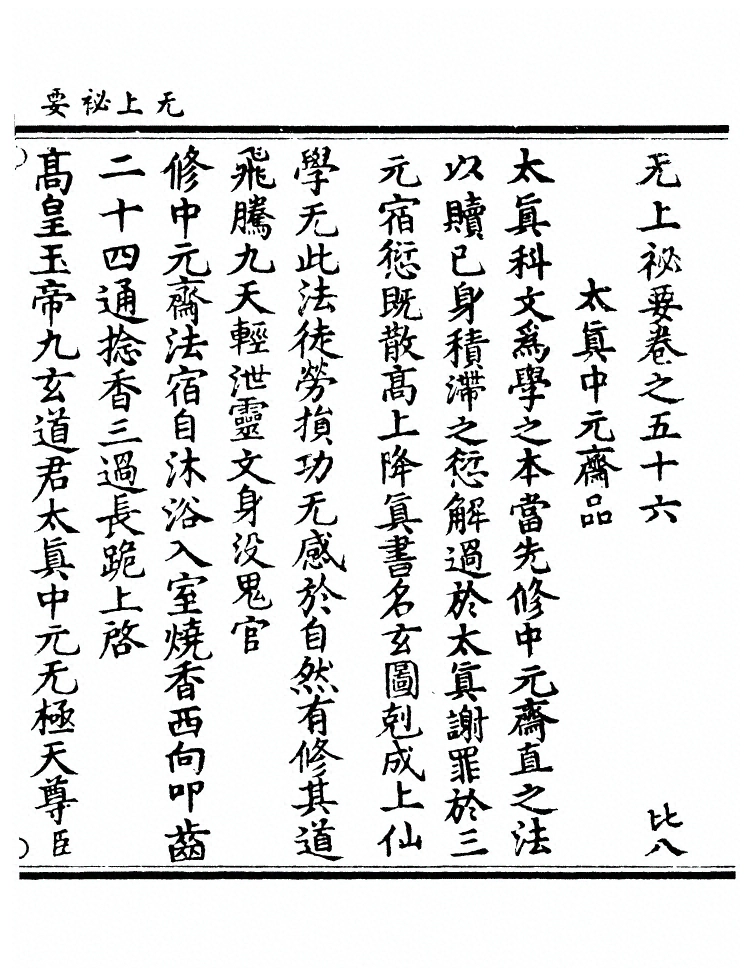 无上祕要
无上祕要卷之五十六 比八
太眞中元齋品
太眞科文爲學之本當先修中元齋直之法
以贖已身積滯之愆解過於太眞謝罪於三
元宿愆既散髙上降眞書名玄圖剋成上仙
學无此法徒勞損功无感於自然有修其道
飛騰九天輕泄靈文身没鬼官
修中元齋法宿自沐浴入室燒香西向叩齒
二十四通捻香三過長跪上啓
髙皇玉帝九玄道君太眞中元无極天尊臣